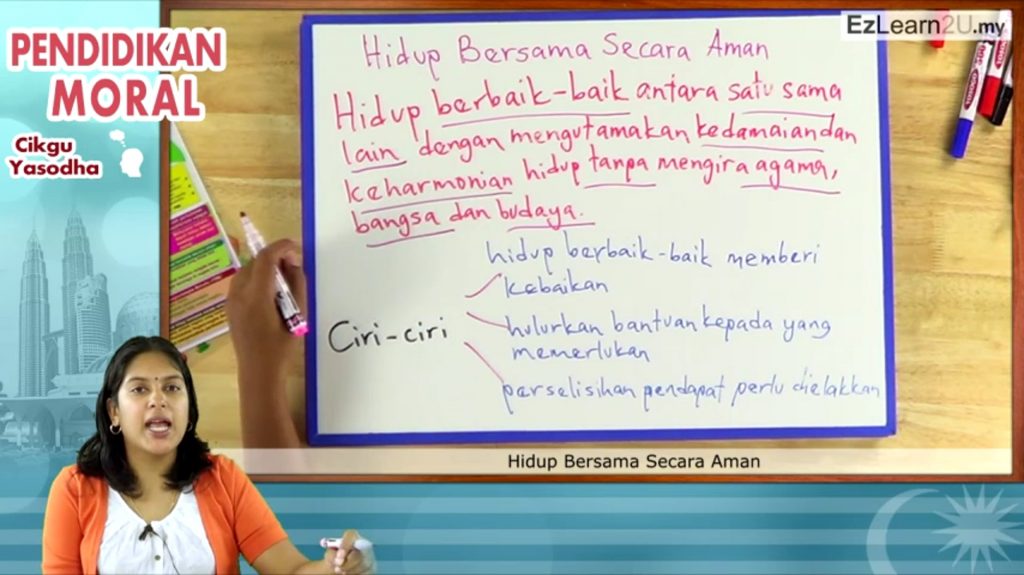 PENDIDIKAN
MORAL
Cikgu
Yasodha
EzLearn2U.my
Hidup Bersama Secara Aman
Hidup berbaik-baik antara satu sama
lain dengan mengutamakan kedamaian dan
keharmonian hidup tanpa mengira agama,
bangsa dan budaya.
Ciri-ciri
hidup berbaik-baik memberi
kebaikan
hulurkan bantuan kepada yang
memerlukan
perselisihan pendapat perlu dielakkan
Hidup Bersama Secara Aman